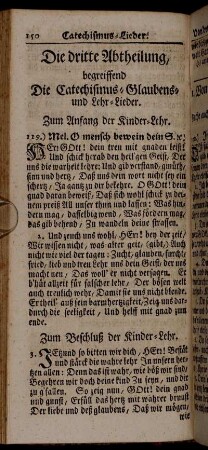 150 Catechismus-Lieder.
Die dritte Abtheilung,
begreiffend
Die Catechismus-Glaubens-
und Lehr-Lieder.
Zum Anfang der Kinder-Lehr.
119.) Mel. O mensch bewein dein S. ꝛc.
HErr GOtt! dein treu mit gnaden leist!
Und schick herab dein heil'gen Geist, Der
uns die warheit lehre: Und gib verstand, gmüth,
sinn und hertz, Daß uns dein wort nicht sey ein
schertz, Ja gantz zu dir bekehre. O GOtt! dein
gnad daran beweiß, Daß sich wohl schick zu dei-
nem preiß All unser thun und lassen: Was hin-
dern mag, dasselbig wend, Was fördern mag,
das gib behend, Zu wandeln deine strassen.
2. Und zeuch uns wohl, HErr! bey der zeit,
Wir wissen nicht, was alter geit, (gibt,) Auch
nicht wie viel der tagen: Zucht, glauben, forcht,
fried, lieb und treu Lehr uns dein Geist, der uns
macht neu, Das woll' er nicht versagen. Er
h'lt uns allzeit unverletzt, Der bösen wollest
nicht seyn zu traulich mehr, Damit sie uns nicht blende.
Ertheil' auß dein barmhertzigkeit, Zeig uns da-
durch die seeligkeit, Und hilff mit gnad am
ende.
Zum Beschluß der Kinder-Lehr.
3. JEtzund so bitten wir dich, HErr! Bestät
und stärck die wahre lehr In unsern hertzen
allen: Denn das ist wahr, wir böß wir sind,
Begehren wir doch deine kind Zu seyn, und dir
zu g'fallen. So zeig nun, GOtt! dein gnad
und gunst, Erfüll das hertz mit wahrer brunst
Der liebe und deß glaubens, Daß wir mögen,
wie